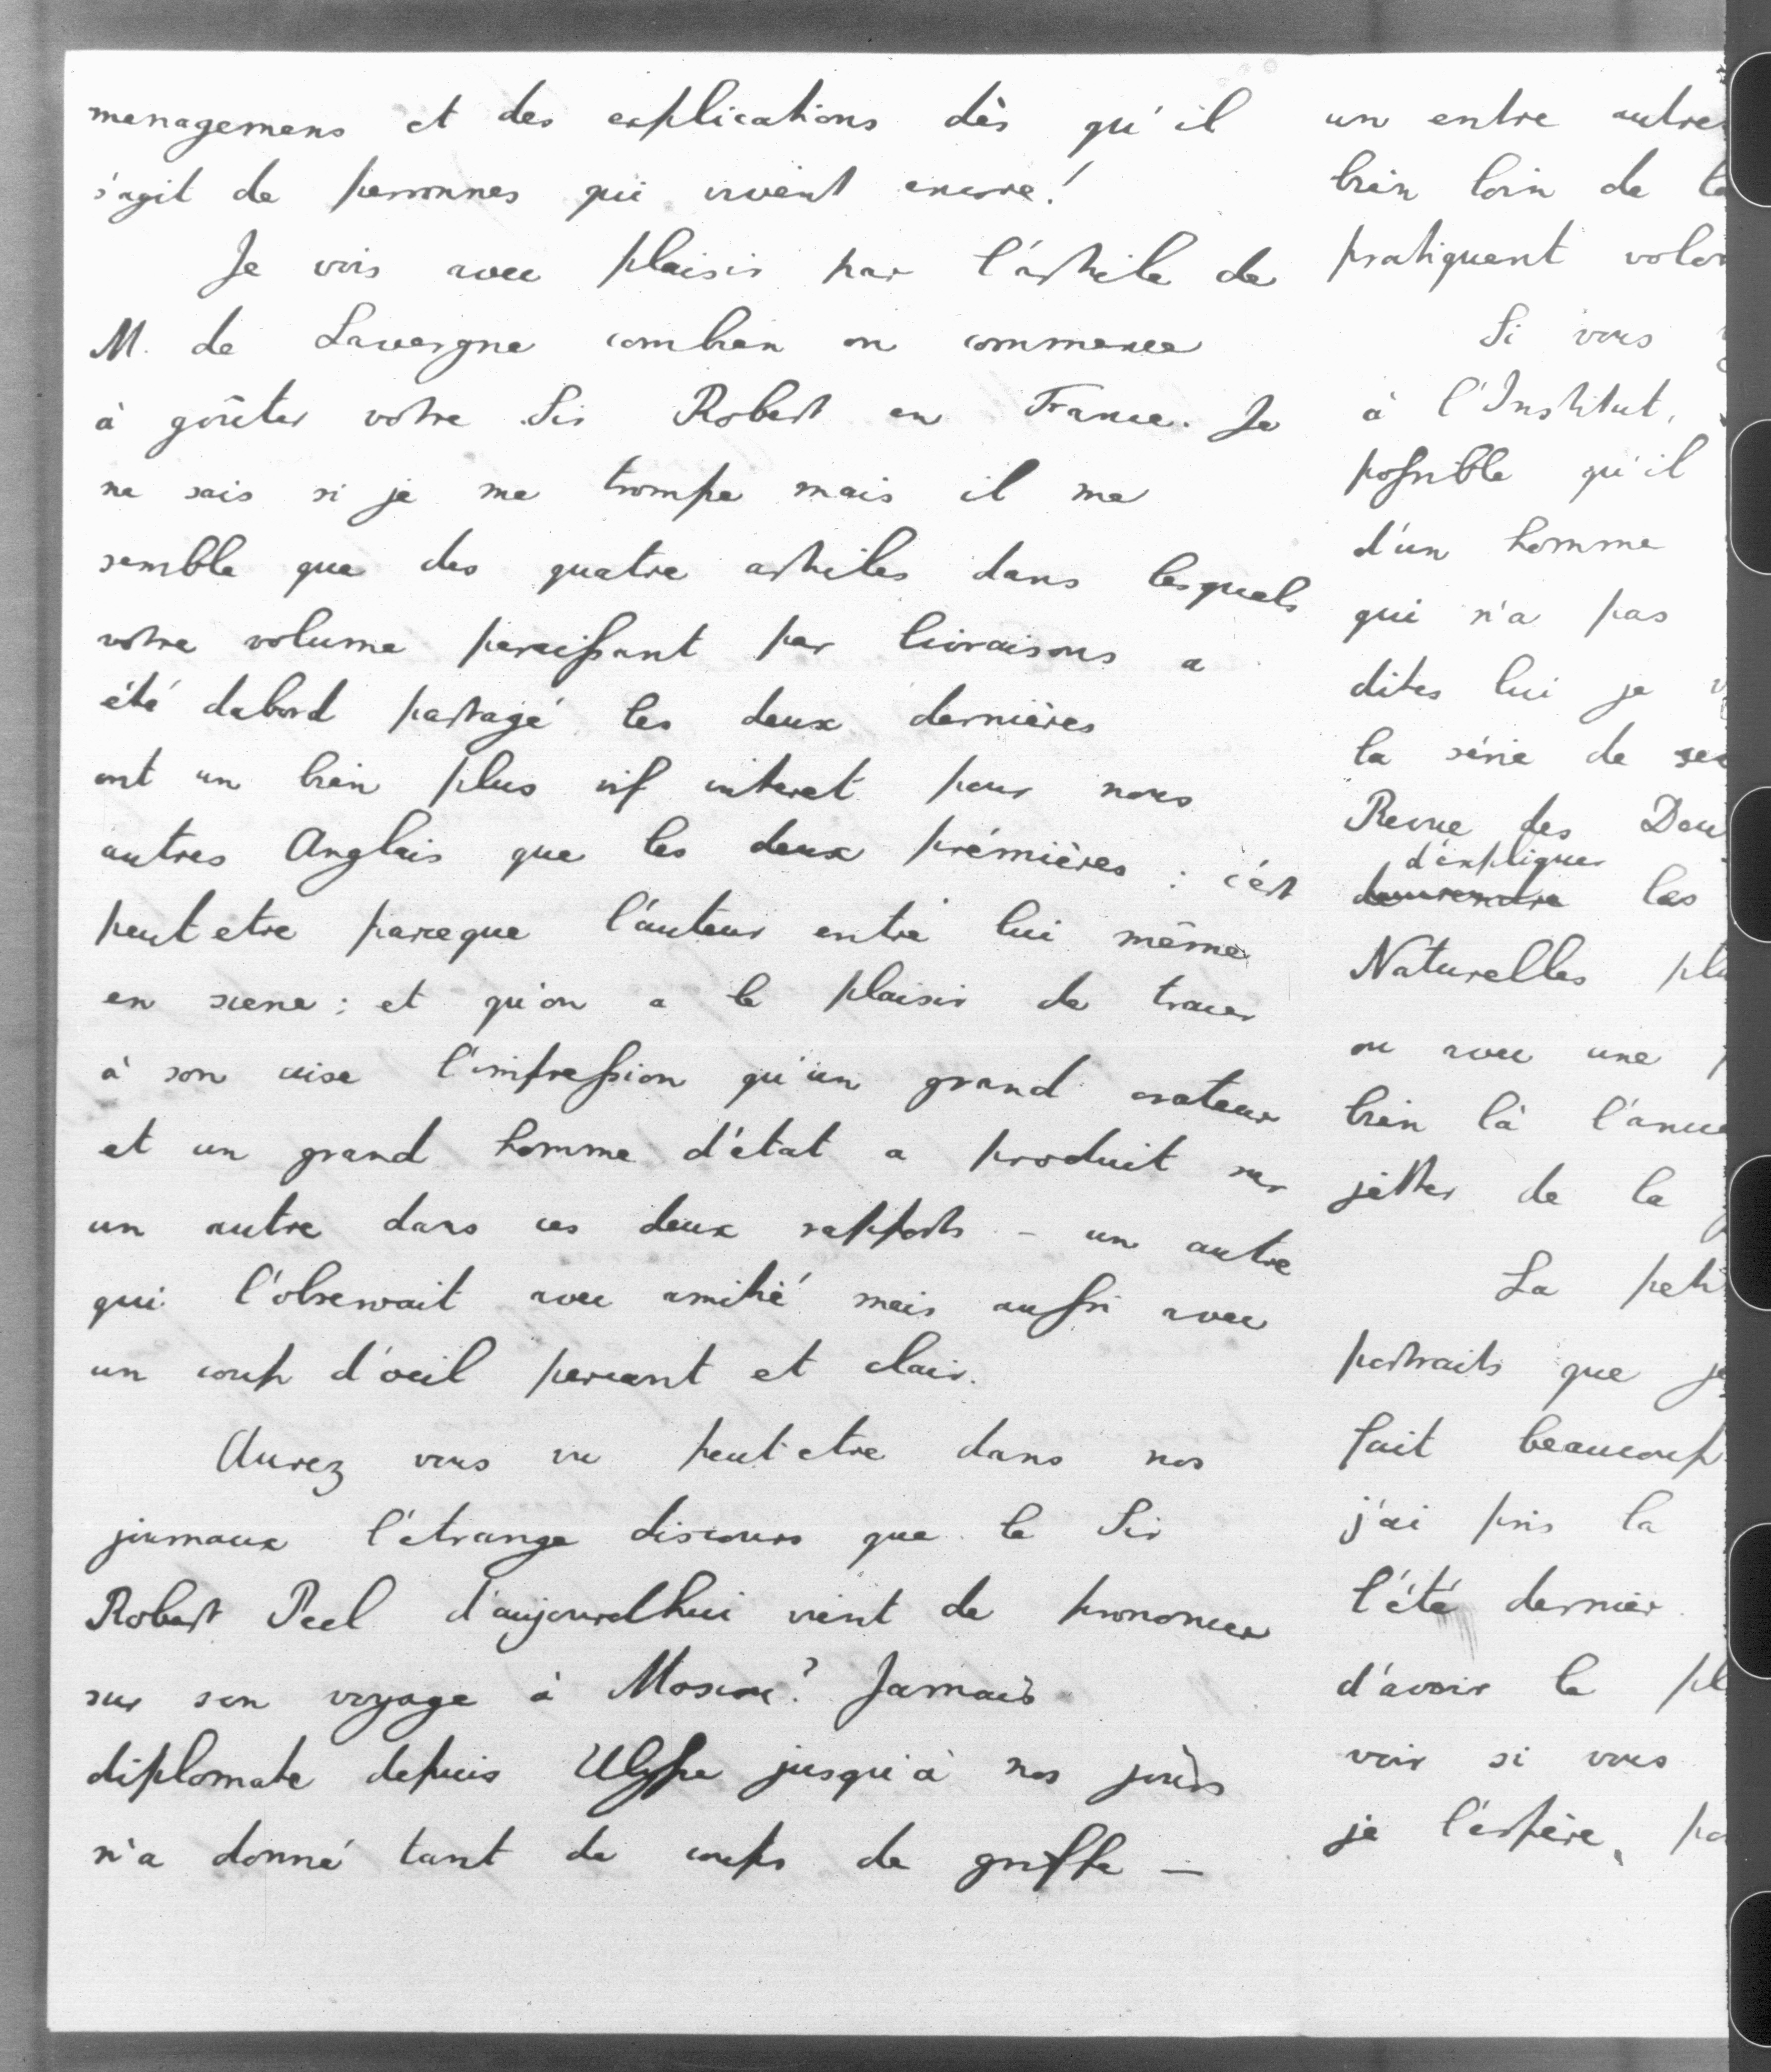 menagemens et des explications dès qu'il
s'agit de personnes qui vivent encore!
Je vois avec plaisir par l'article de
M. de Lavergne combien on commence
à goûter votre Sir Robert en France. Je
ne sais si je me trompe mais il me
semble que des quatre articles dans lesquels
votre volume paraissant par livraisons a
été dabord partagé les deux dernières
ont un bien plus vif interet pour nous
autres Anglais que les deux prémières : c'est
peut etre parceque l'auteur entre lui même
en scene : et qu'on a le plaisir de tracer
à son aise l'impression qu'un grand orateur
et un grand homme d'état a produit sur
un autre dans ces deux rapports – un autre
qui l'observait avec amitié mais aussi avec
un coup d'oeil percant et clair.
Aurez vous vu peut-etre dans nos
journaux l'etrange discours que le Sir
Robert Peel d'aujourdhui vient de prononcer
sur son voyage à Moscou? Jamais
diplomate depuis Ulysse jusqu'à nos jours
n'a donné tant de coups de griffe —
un entre autres
bien loin de
pratiquent
Si vous
à l'Institut,
possible qu'il
d'un homme
qui n'a pas
dites lui je
la série de ses
Revue des
d'expliquer
les
Naturelles
ou avec une
bien là
jetter de la
La
portraits que je
fait beaucoup
j'ai pris la
l'été dernier
d'avoir le
voir si vous
je l'espère,